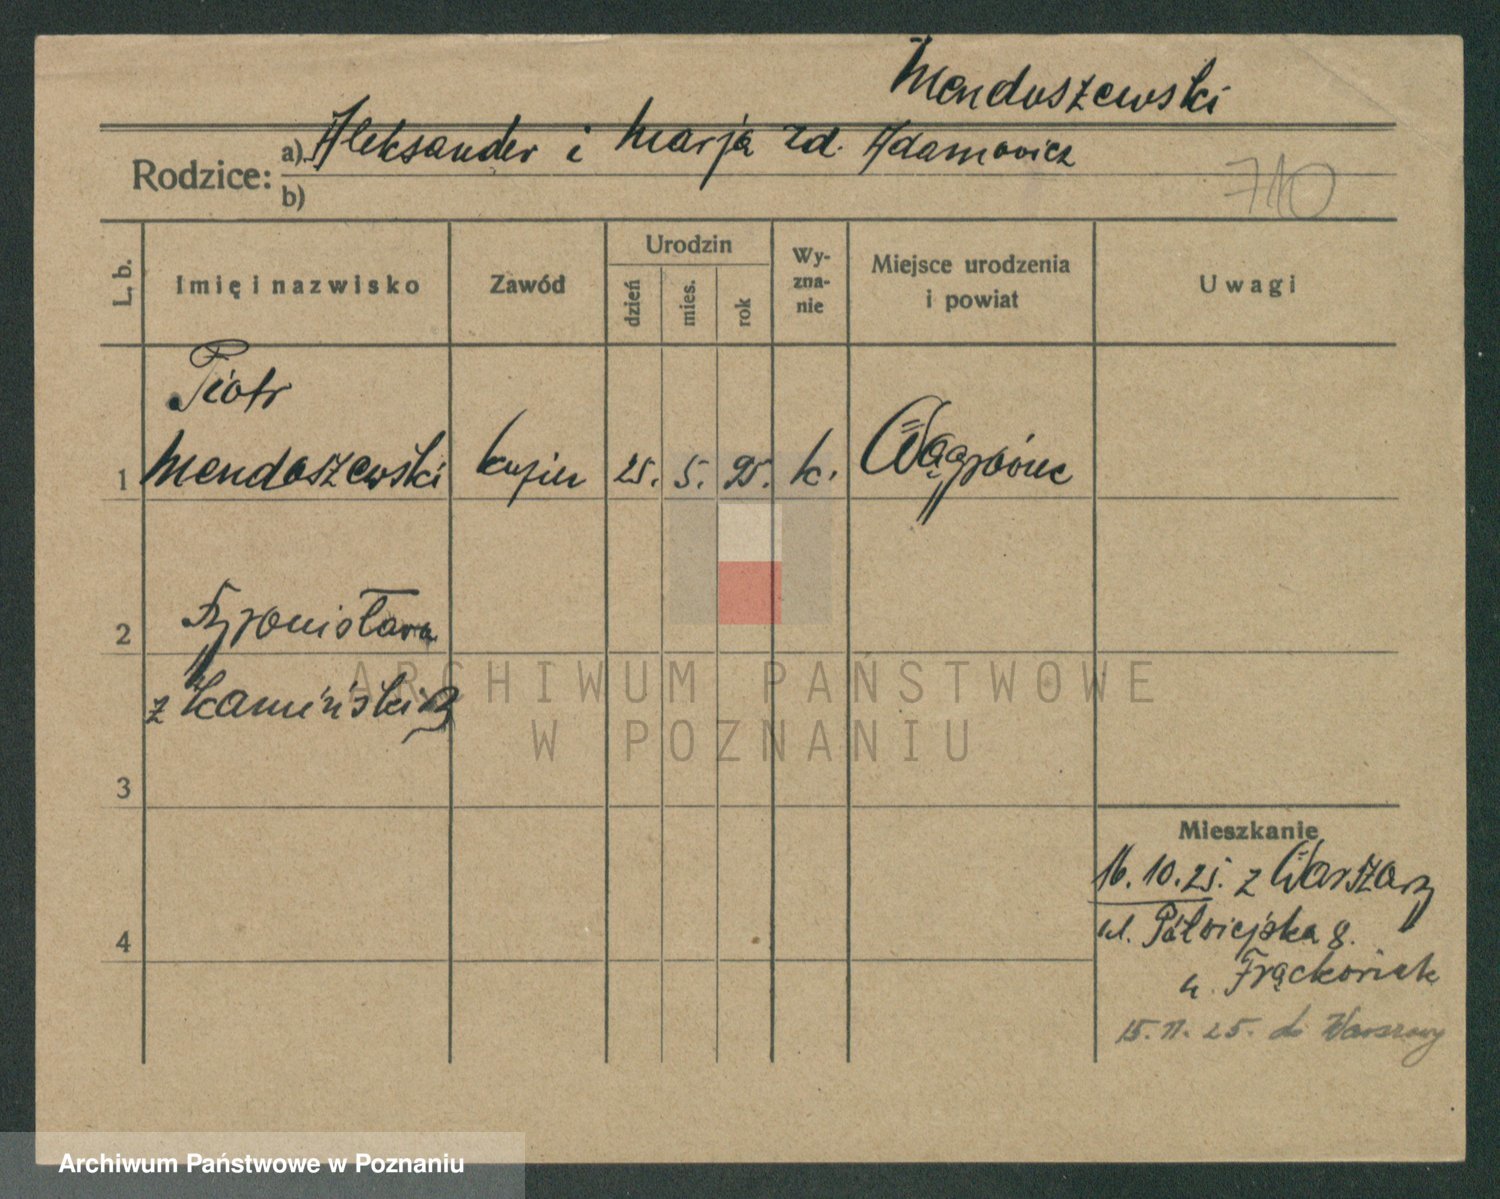 Mendoszewski
Rodzice: a) Aleksander i Marja zd. Adamowicz
b)
710
L. b.
Imię i nazwisko
Zawód
Urodzin
dzień
mies.
rok
Wy-
zna-
nie
Miejsce urodzenia
i powiat
Uwagi
Piotr
1 Mendoszewski kupiec 25. 5. 95. k. Wągrówiec
2 Bronisława
z Kamińskich
3
4
Mieszkanie
16.10.25. z Warszawy
ul. Półwiejska 8.
u. Frąckowiak
15.11.25. do Warszawy
ARCHIWUM PAŃSTWOWE
W POZNANIU
Archiwum Państwowe w Poznaniu